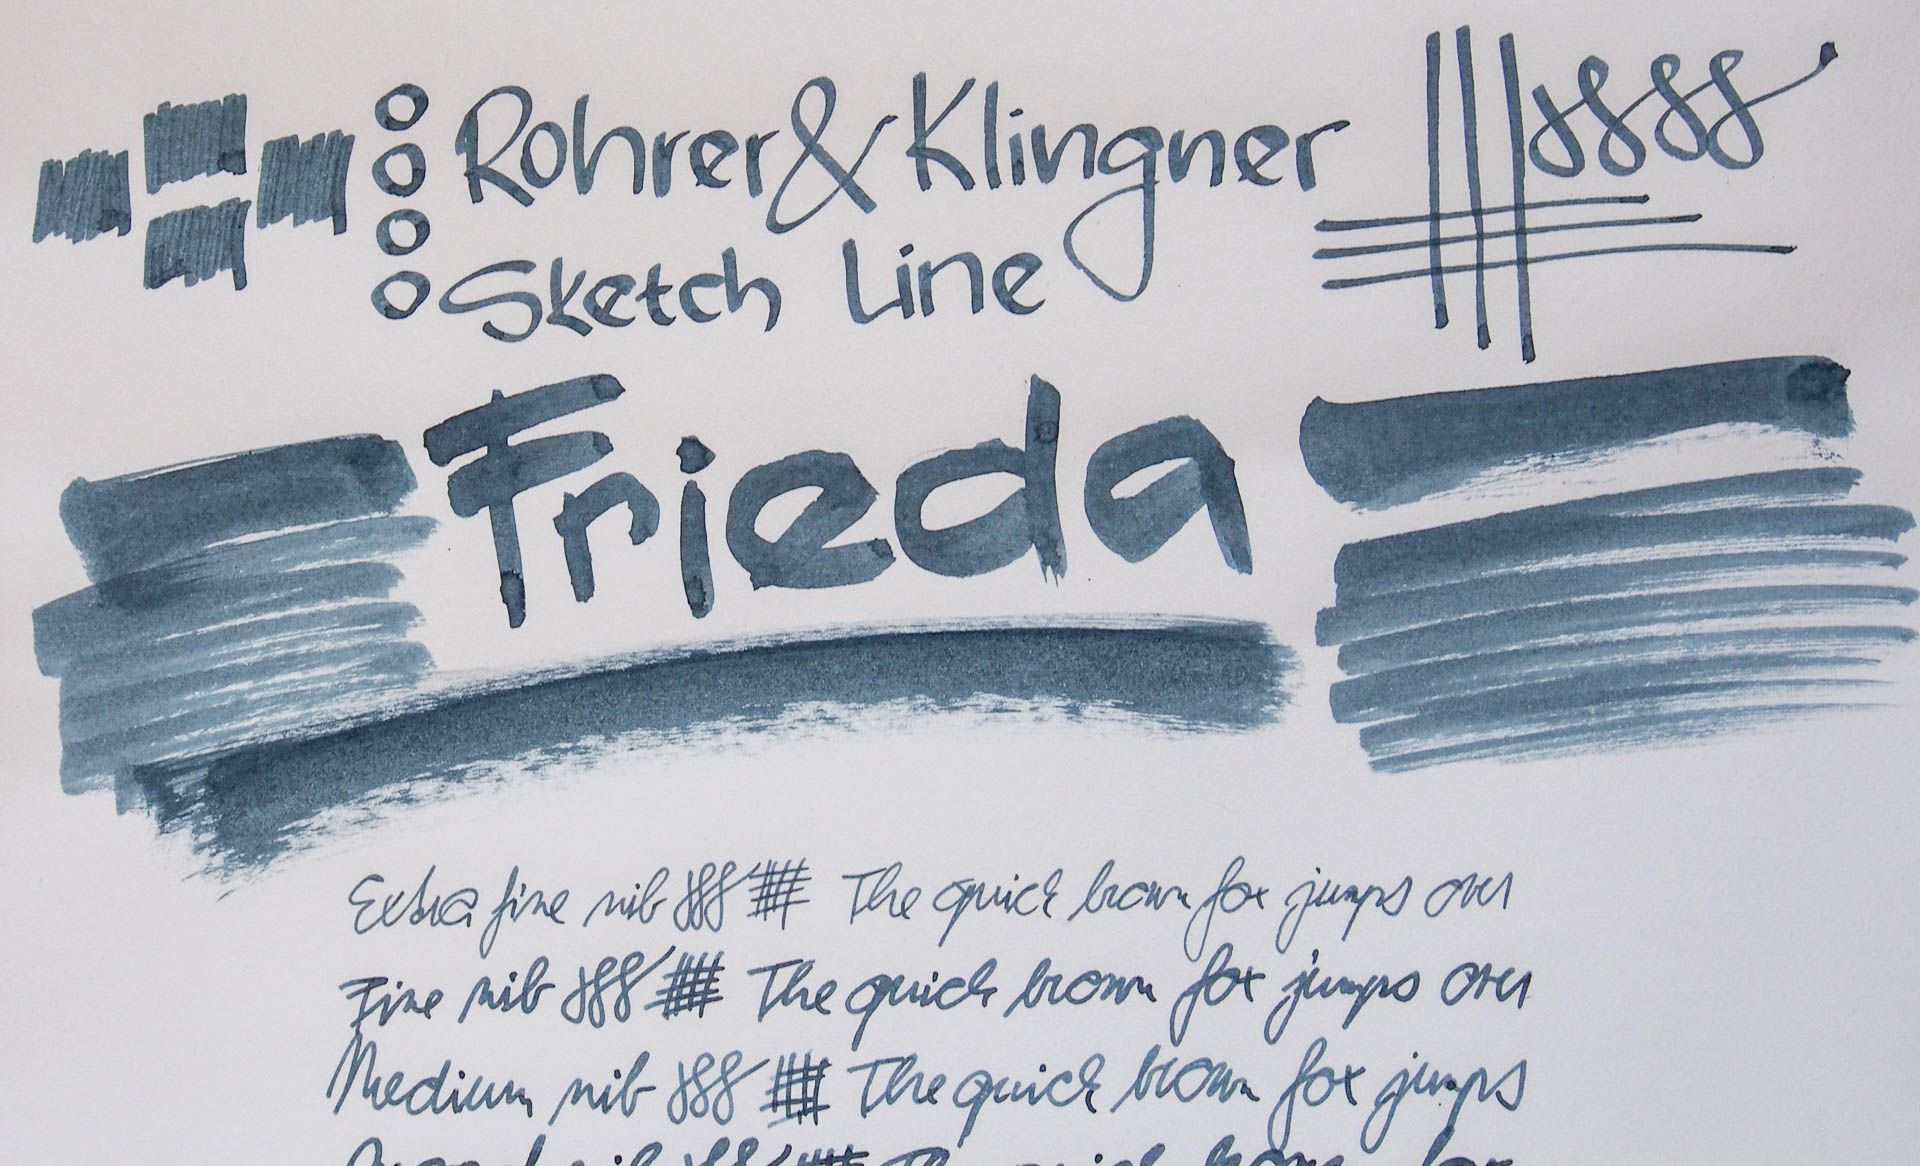 Rohrer & Klingner
Sketch Line
Frieda
Extra fine nib The quick brown fox jumps over
Fine nib The quick brown fox jumps over
Medium nib The quick brown fox jumps